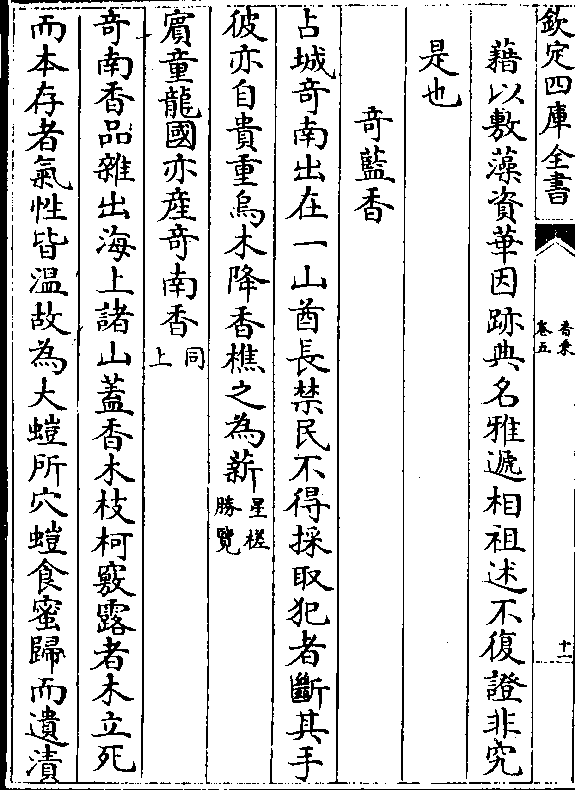 欽定四庫全書
香乗
卷五
十一
藉以敷藻資華因跡典名雅遞相祖述不復證非究
是也
竒藍香
占城竒南出在一山酋長禁民不得採取犯者斷其手
彼亦自貴重烏木降香樵之為薪星槎勝覽
賔童龍國亦産竒南香同上
竒南香品雜出海上諸山蓋香木枝柯竅露者木立死
而本存者氣性皆温故為大螘所穴螘食蜜歸而遺漬